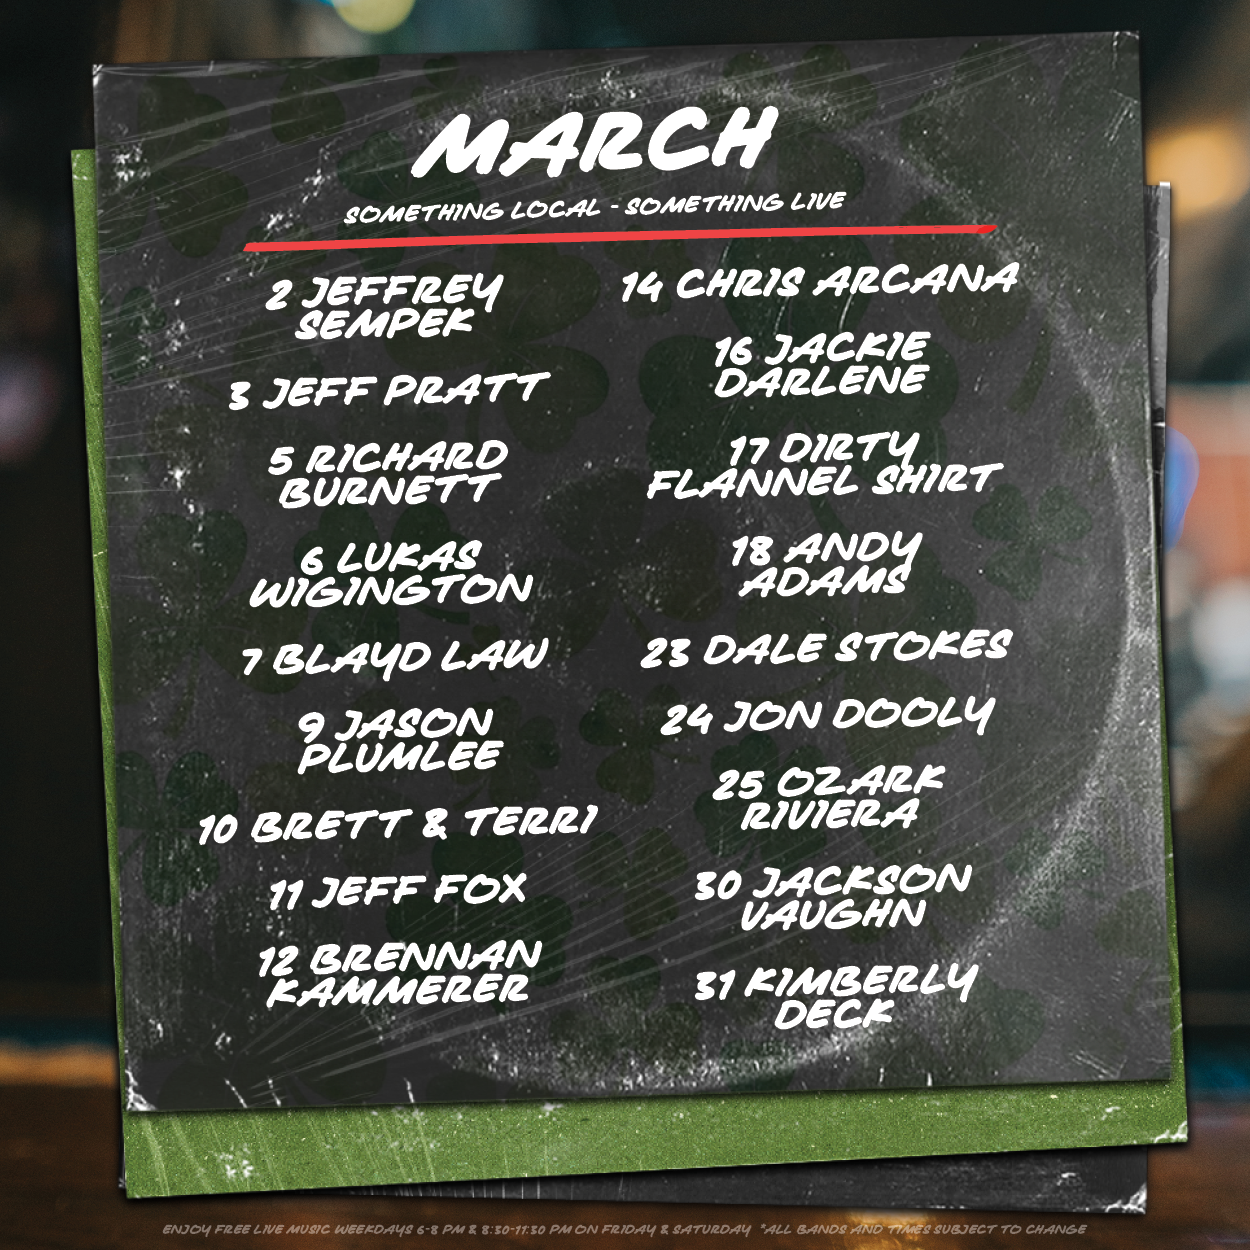 MARCH
SOMETHING LOCAL - SOMETHING LIVE
2 JEFFREY
SEMPEK
3 JEFF PRATT
5 RICHARD
BURNETT
6 LUKAS
WIGINGTON
7 BLAYD LAW
9 JASON
PLUMLEE
10 BRETT & TERRI
11 JEFF FOX
12 BRENNAN
KAMMERER
14 CHRIS ARCANA
16 JACKIE
DARLENE
17 DIRTY
FLANNEL SHIRT
18 ANDY
ADAMS
23 DALE STOKES
24 JON DOOLY
25 OZARK
RIVIERA
30 JACKSON
VAUGHN
31 KIMBERLY
DECK
ENJOY FREE LIVE MUSIC WEEKDAYS 6-8 PM & 8:30-11:30 PM ON FRIDAY & SATURDAY *ALL BANDS AND TIMES SUBJECT TO CHANGE